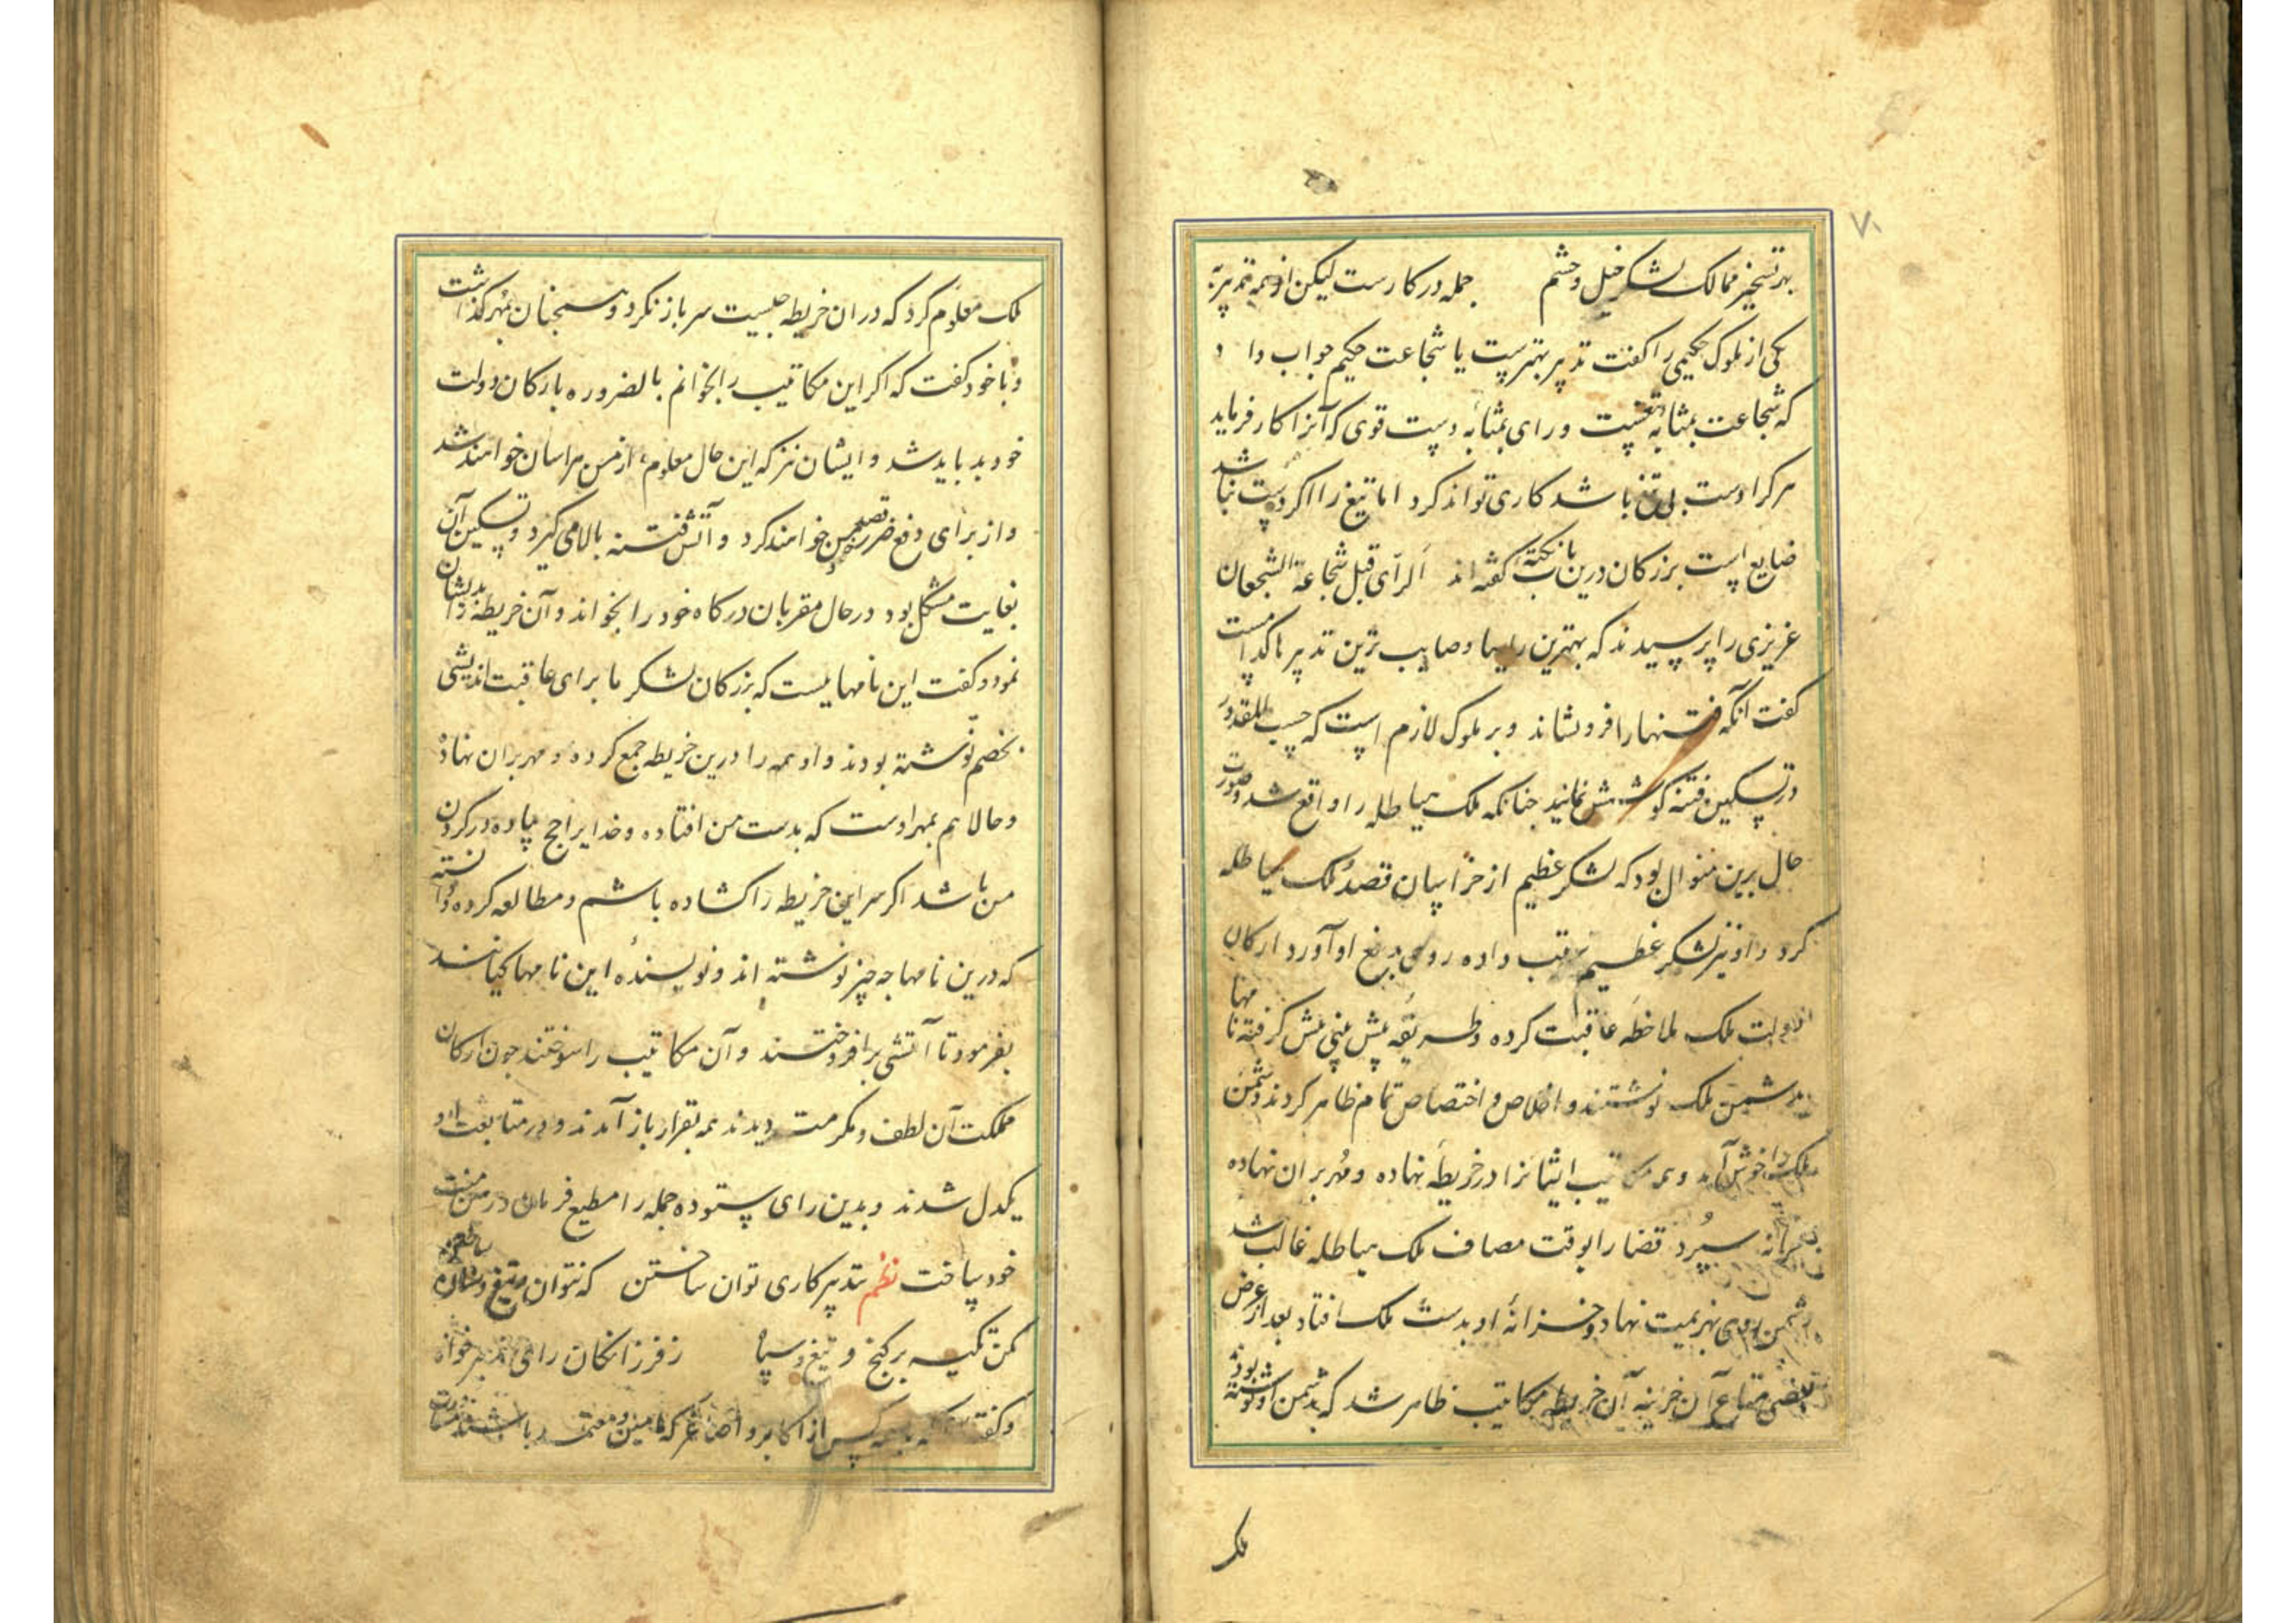 بهر تسخیر ممالک لشکر خیل و حشم جمله در کارست لیکن از همه تدبیر به
یکی از ملوک حکیمی را کفت تدبیر بهترست یا شجاعت حکیم جواب داد
که شجاعت بمثابه تیغست و رای بمثابه دست قوی که آنرا کار فرماید
هر کرا دست بی تیغ باشد کاری تواند کرد اما تیغ را اکر دست نباشد
ضایع است بزرکان درین باب نکته کفته اند الرای قبل شجاعة الشجعان
عزیزی را پرسیدند که بهترین رایها و صایب ترین تدبیرها کدامست
کفت آنکه فتنها را فرو نشاند و بر ملوک لازم است که حسب المقدور
در تسکین فتنه کوشش نمایند جنانکه ملک هیاطله را واقع شد و صورت
حال برین منوال بود که لشکر عظیم از خراسان قصد ملک هیاطله
کرد و او نیز لشکر عظیم ترتیب داده روی بدفع او آورد ارکان
دولت ملک ملاحظه عاقبت کرده و طریقه پیش بینی پیش کرفته نامها
بدشمن ملک نوشتند و اخلاص و اختصاص تمام ظاهر کردند دشمن
ملک را خوش آمد و همه مکاتیب ایشانرا در خریطه نهاده و مهر بران نهاده
بخزانه سپرد قضا را بوقت مصاف ملک هیاطله غالب شد
دشمن روی بهزیمت نهاد و خزانه او بدست ملک افتاد بعد از عرض
بعضی متاع آن خزینه آن خریطه مکاتیب ظاهر شد که بدشمن او نوشته بودند
ملک
۷۰
ملک معلوم کرد که در ان خریطه جیست سر باز نکرد و همچنان بمهر کذاشت
و با خود کفت که اکر این مکاتیب را بخوانم بالضروره با ارکان دولت
خود بد باید شد و ایشان نیز که این حال معلوم از من هراسان خواهند شد
و از برای دفع ضرر قصد من خواهند کرد و آتش فتنه بالا می کیرد و تسکین آن
بغایت مشکل بود در حال مقربان درکاه خود را بخواند و آن خریطه را بدیشان
نمود و کفت این نامهایست که بزرکان لشکر ما برای عاقبت اندیشی
بخصم نوشته بودند و او همه را درین خریطه جمع کرده و مهر بران نهاده
و حالا هم بمهر اوست که بدست من افتاده و خدایرا حج پیاده در کردن
من باشد اکر سر این خریطه را کشاده باشم و مطالعه کرده و دانسته
که درین نامها جه چیز نوشته اند و نویسنده این نامها کیانند
بفرمود تا آتشی برافروختند و آن مکاتیب را سوختند جون ارکان
مملکت آن لطف و مکرمت دیدند همه بقرار باز آمدند و در متابعت او
یکدل شدند و بدین رای ستوده جمله را مطیع فرمان
خود ساخت نظم بتدبیر کاری توان ساختن که نتوان بتیغ و سنان ساختن
مکن تکیه بر کنج و تیغ و سپاه ز فرزانکان رای و تدبیر خواه
و کفته که کس از اکابر و اصاغر که امین و معتمد باشند